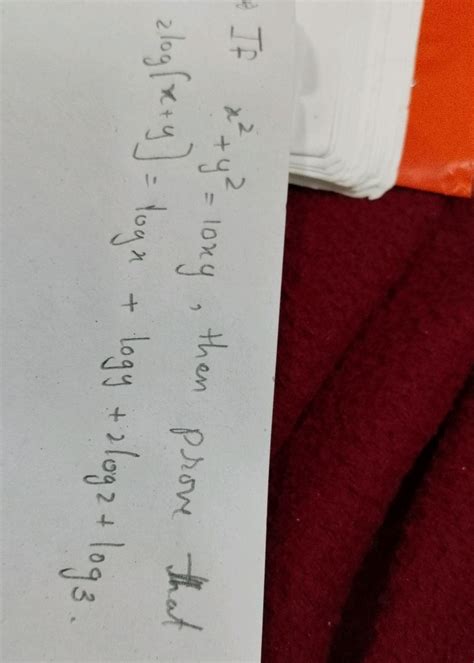 If x² + y² = 10xy, then prove that
2log[x+y] = logx + logy + 2log2 + log3.